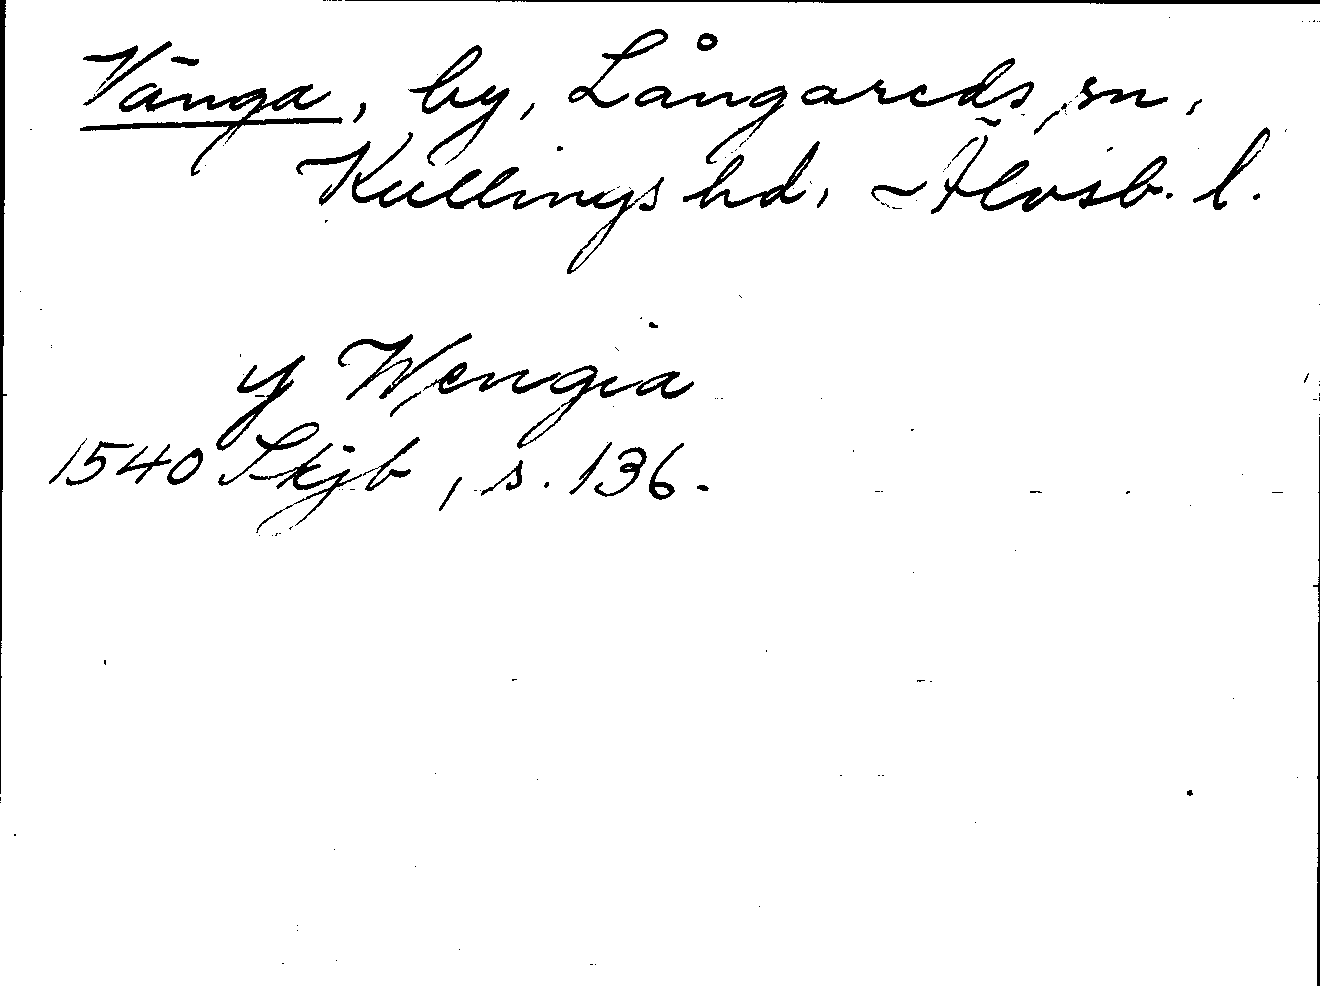 Vänga, by, Långareds sn,
Kullings hd, Älvsb. l.
y Wengia
1540 Skjb, s. 136.